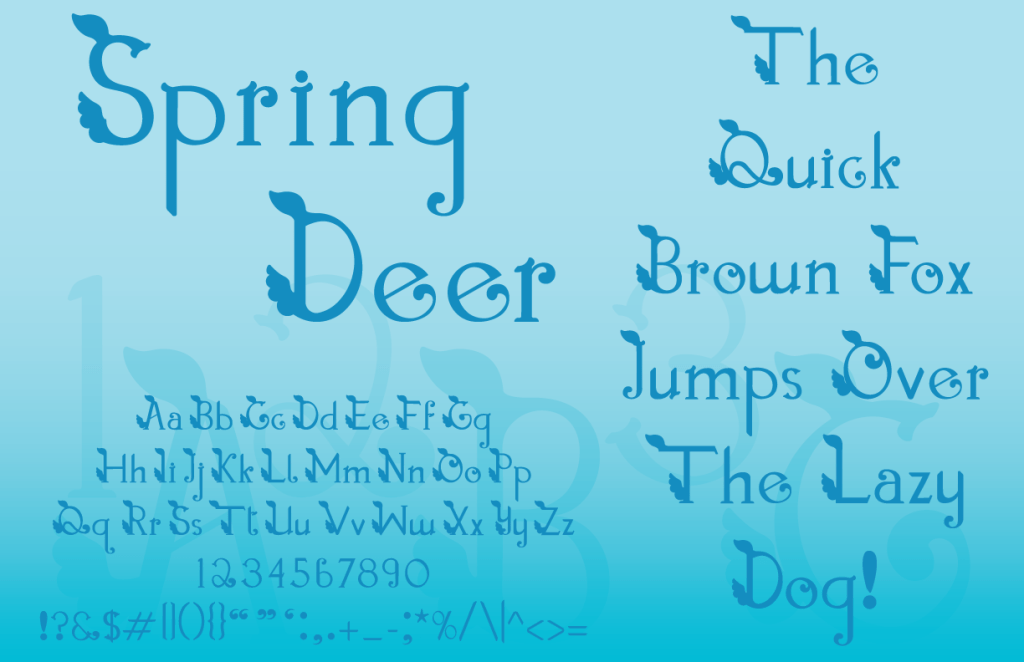 Spring
Deer
Aa Bb Cc Dd Ee Ff Gg
Hh Ii Jj Kk Ll Mm Nn Oo Pp
Qq Rr Ss Tt Uu Vv Ww Xx Yy Zz
1234567890
!?&$#[](){}“”‘:,.+_-;*%/\|^<>=
The
Quick
Brown Fox
Jumps Over
The Lazy
Dog!
123
ABC